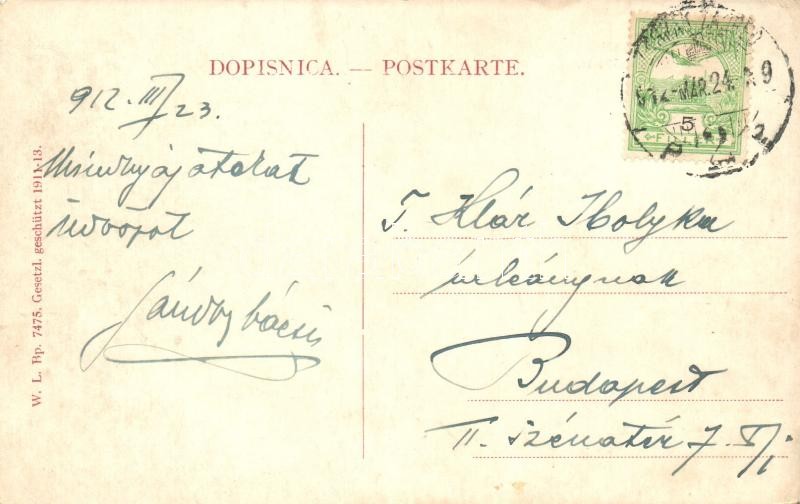 DOPISNICA. — POSTKARTE.
912. III/23.
Mindnyájatokat
üdvözöl
Sándor bácsi
T. Klár Ibolyka
úrleánynak
Budapest
II. Széna tér 7. II/
W. L. Bp. 7475. Gesetzl. geschützt 1911-13.
912 MÁR. 24
5